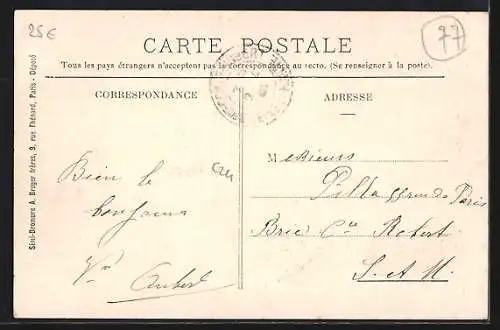 25€
77
CARTE POSTALE
Tous les pays étrangers n'acceptent pas la correspondance au recto. (Se renseigner à la poste).
CORRESPONDANCE
ADRESSE
Simi-Bromure A. Breger frères, 9, rue Thénard, Paris - Déposé
Bien le
bonjour
Messieurs
Brie Cte Robert
S. et M.